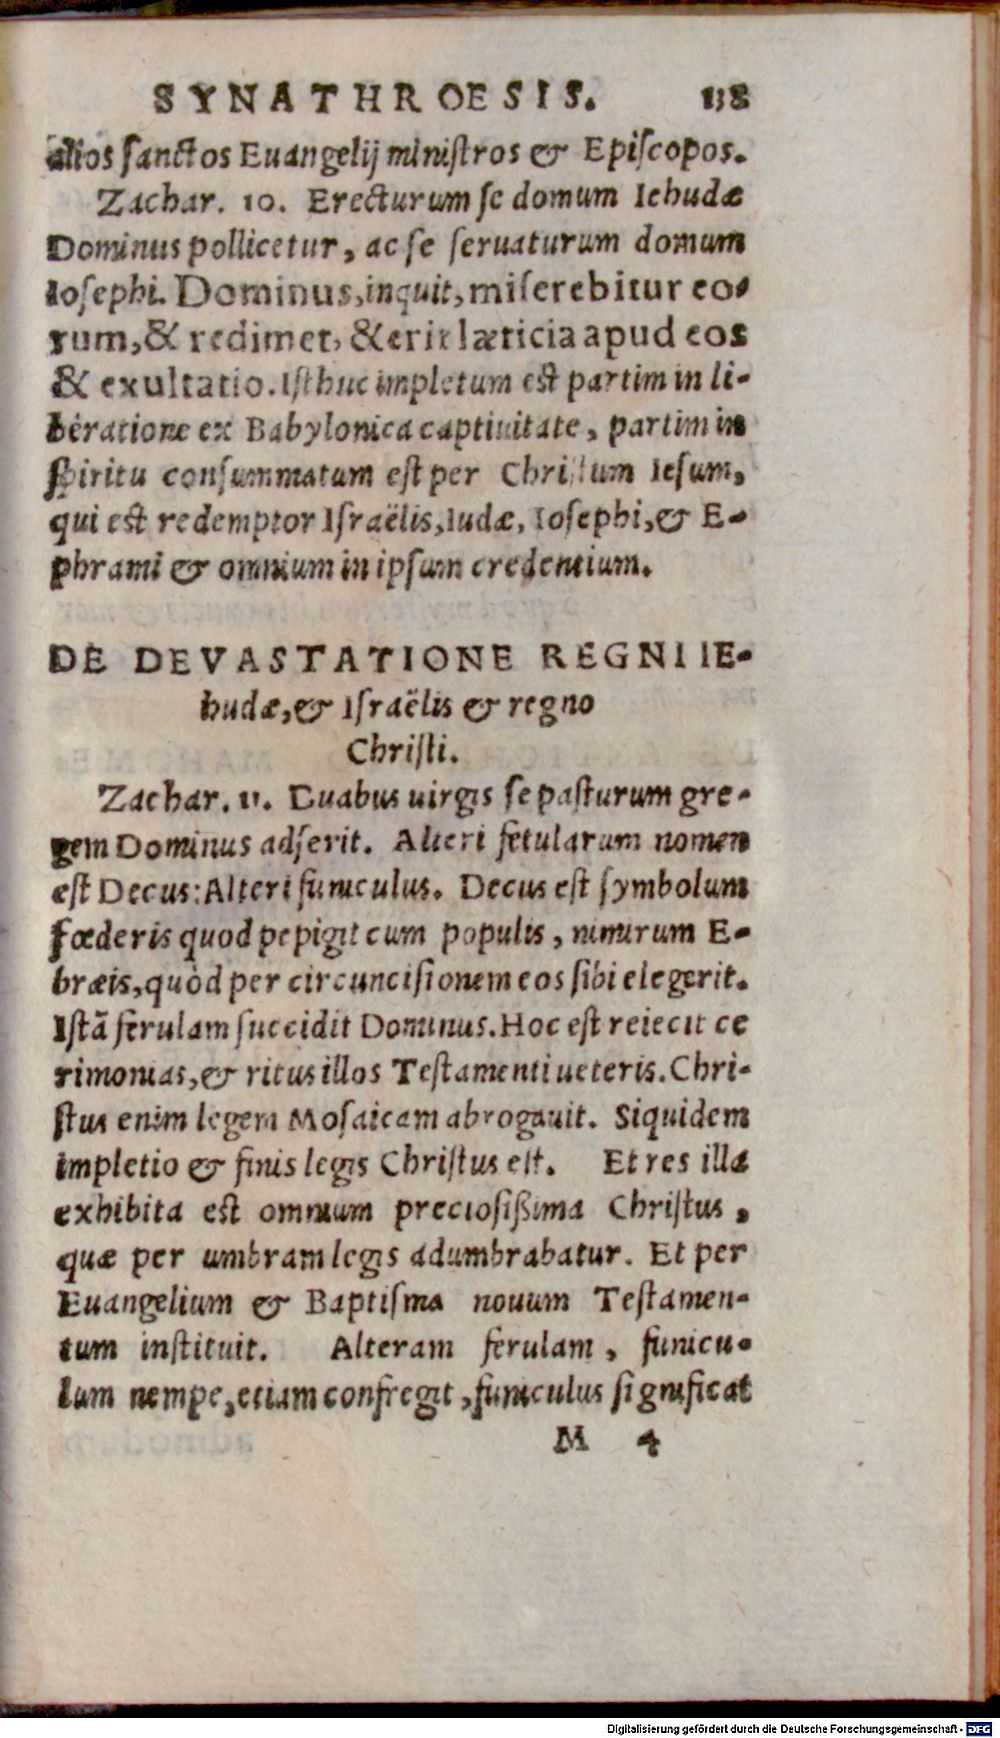 SYNATHROESIS. 138
alios sanctos Euangelij ministros & Episcopos.
Zachar. 10. Erecturum se domum Iehudæ
Dominus pollicetur, ac se seruaturum domum
Iosephi. Dominus, inquit, miserebitur eo-
rum, & redimet, & erit læticia apud eos
& exultatio. Isthuc impletum est partim in li-
beratione ex Babylonica captiuitate, partim in
spiritu consummatum est per Christum Iesum,
qui est redemptor Israëlis, Iudæ, Iosephi, & E-
phrami & omnium in ipsum credentium.
DE DEVASTATIONE REGNI IE-
hudæ, & Israëlis & regno
Christi.
Zachar. 11. Duabus uirgis se pasturum gre-
gem Dominus adserit. Alteri fetularum nomen
est Decus: Alteri funiculus. Decus est symbolum
fœderis quod pepigit cum populis, nimirum E-
bræis, quòd per circuncisionem eos sibi elegerit.
Istā ferulam succidit Dominus. Hoc est reiecit ce
rimonias, & ritus illos Testamenti ueteris. Chri-
stus enim legem Mosaicam abrogauit. Siquidem
impletio & finis legis Christus est. Et res illa
exhibita est omnium preciosißima Christus,
quæ per umbram legis adumbrabatur. Et per
Euangelium & Baptisma nouum Testamen-
tum instituit. Alteram ferulam, funicu-
lum nempe, etiam confregit, funiculus significat
M 4
Digitalisierung gefördert durch die Deutsche Forschungsgemeinschaft - DFG